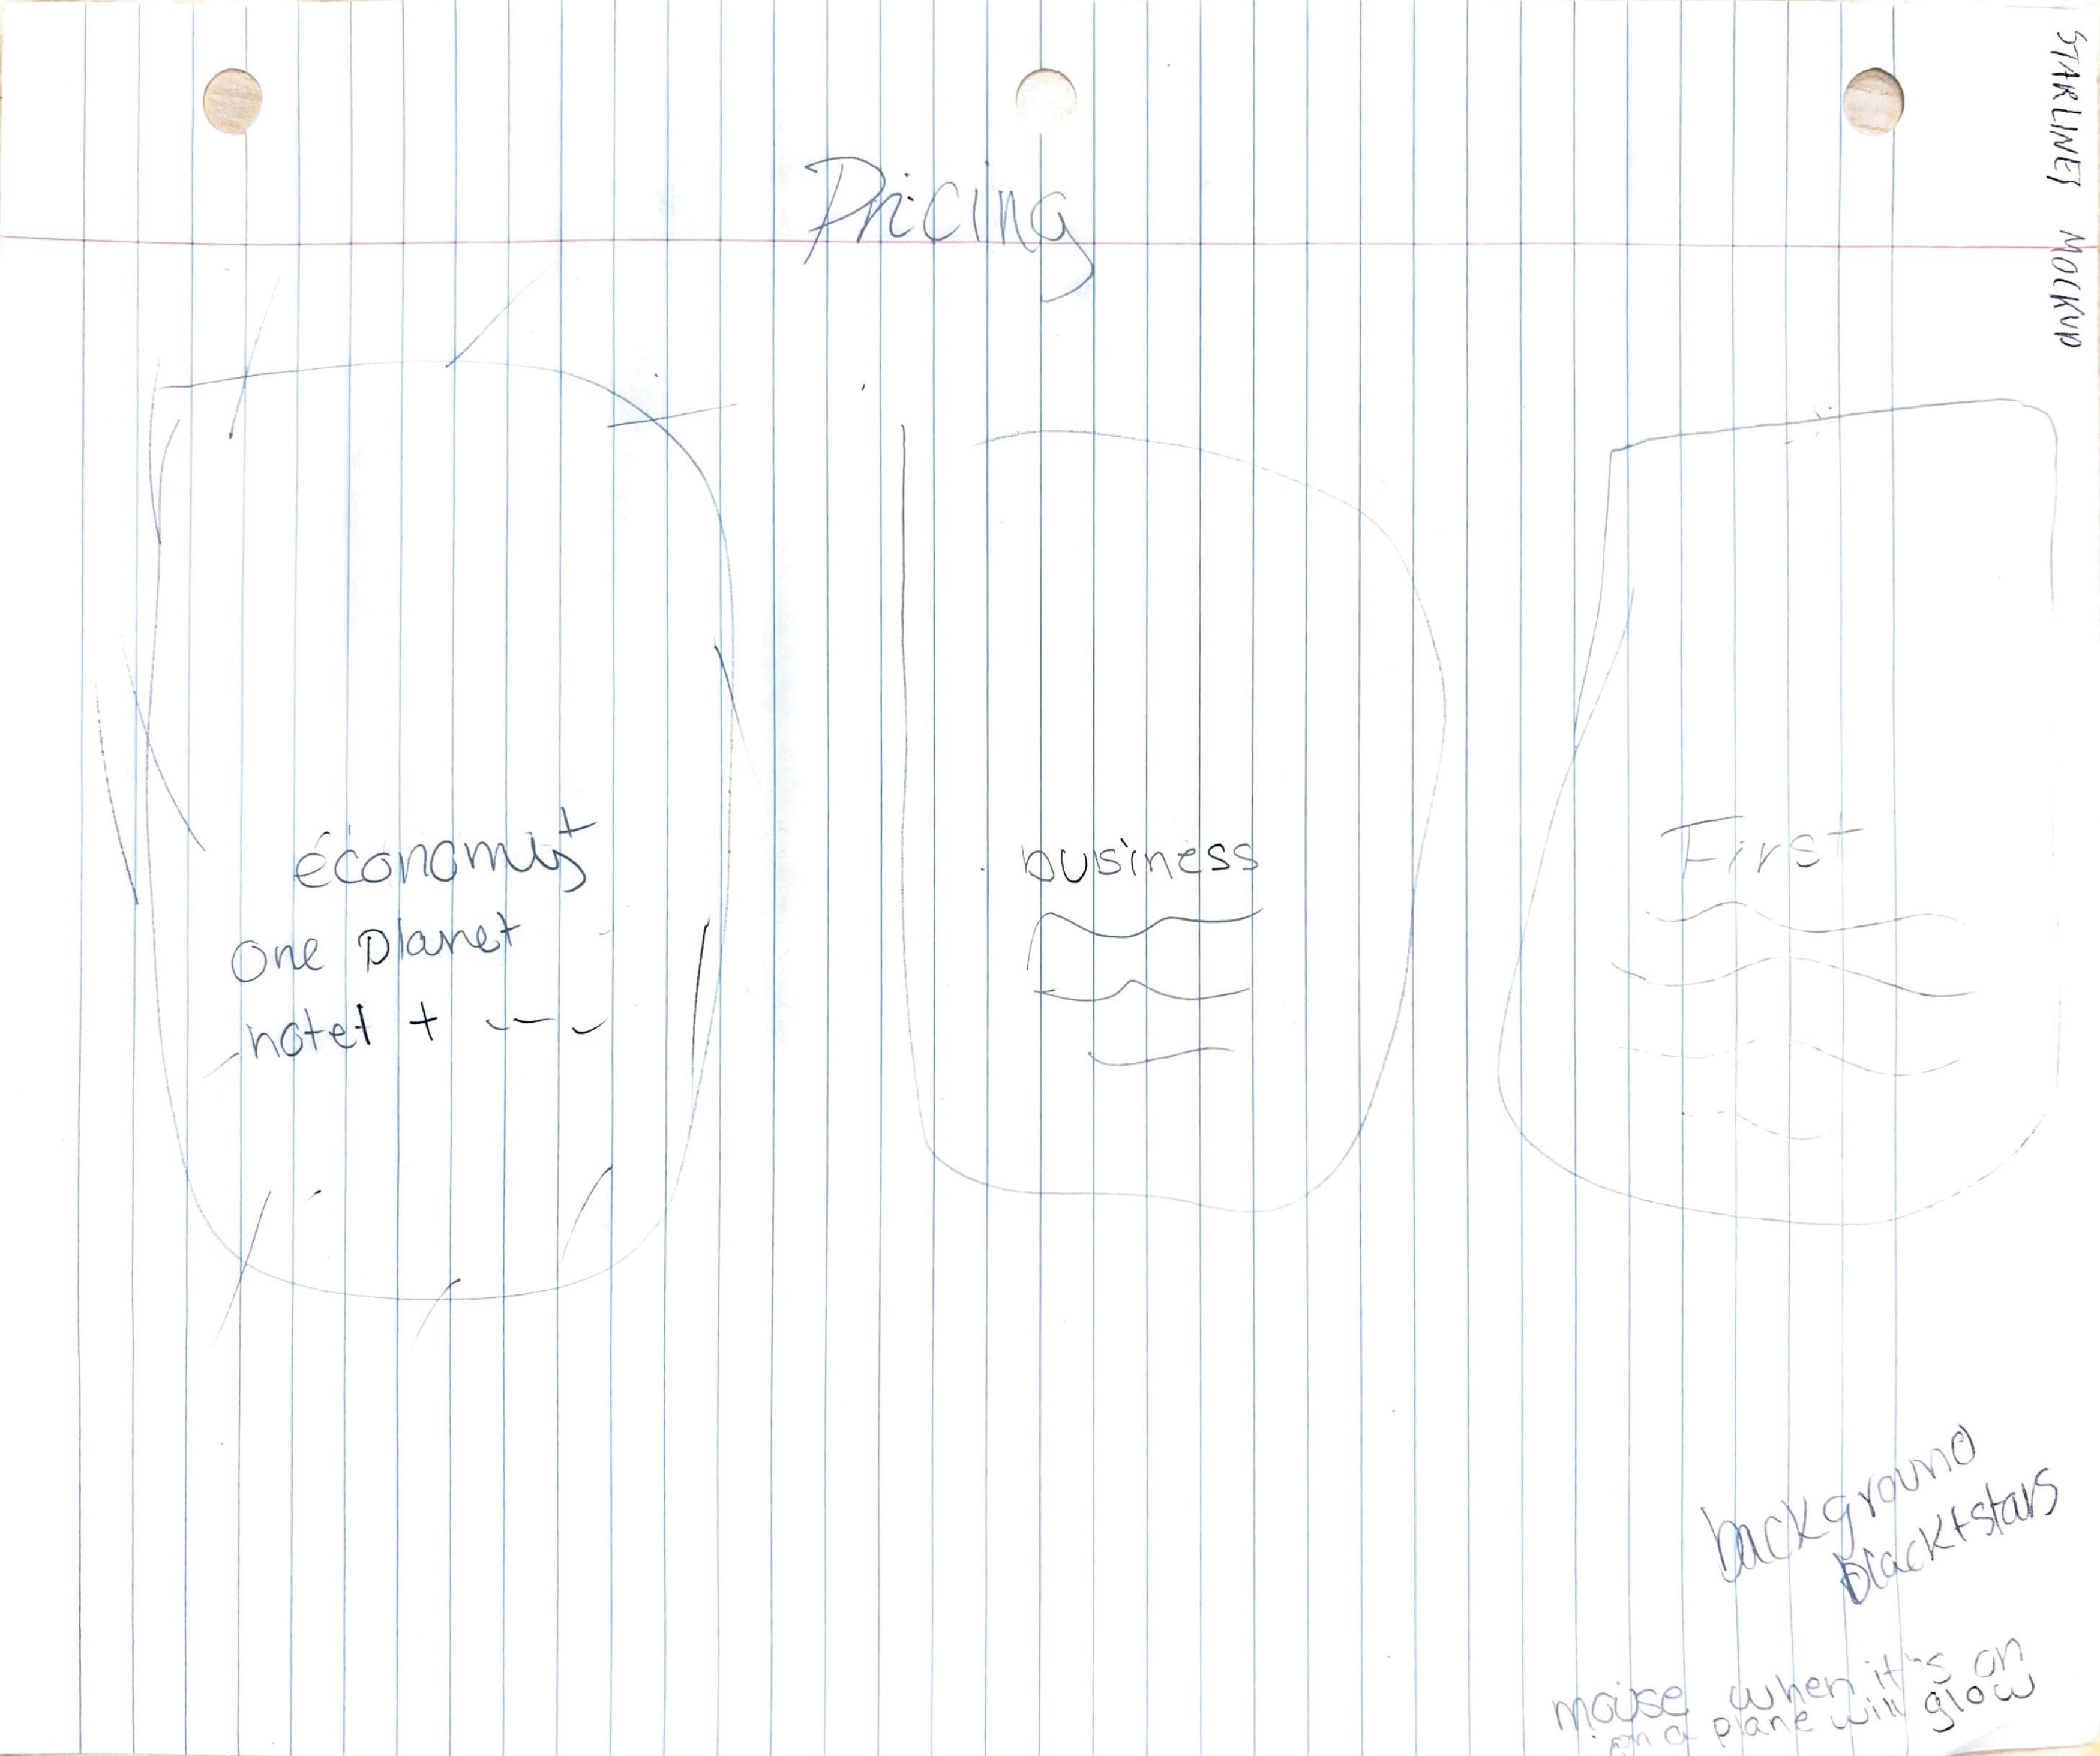 STARLINES MOCKUP
Pricing
économist
one planet
hotel +
business
First
background
black+stars
mouse when it's on
on a plane will glow